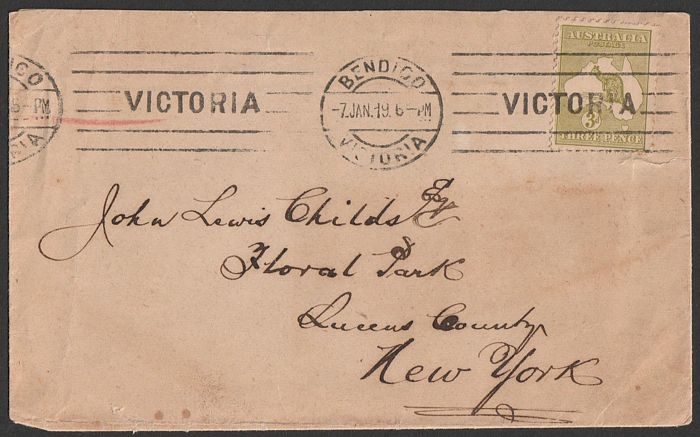 BENDIGO
-7.JAN.19.6-PM
VICTORIA
VICTORIA
VICTORIA
AUSTRALIA
POSTAGE
3D
THREE PENCE
John Lewis Childs Esqr
Floral Park
Queens County
New York